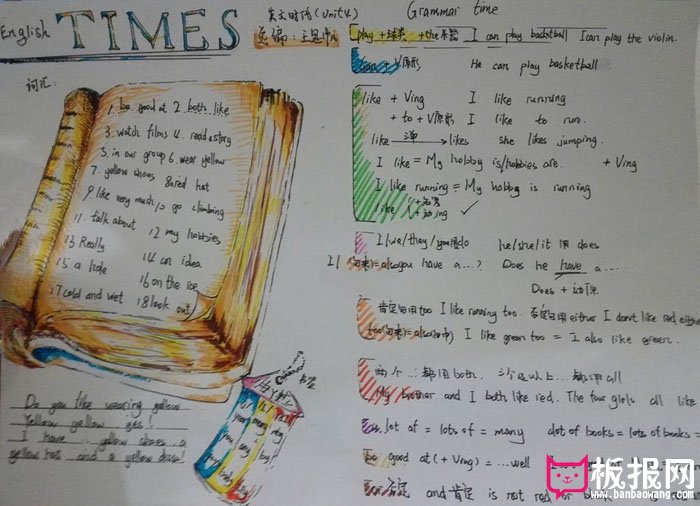 English TIMES
英文时代(Unit4)
Grammar time
play +球类 +the乐器 I can play basketball I can play the violin.
can + V原形 He can play basketball
词汇:
1. be good at 2. both like
3. watch films 4. read a story
5. in our group 6. wear yellow
7. yellow shoes 8. a red hat
9. like very much 10. go climbing
11. talk about 12 my hobbies
13 Really 14 an idea
15 a hole 16 on the ice
17 cold and wet 18 look out
like + Ving I like running
+ to + V原形 I like to run.
like → likes she likes jumping.
I like = My hobby is/hobbies are. + Ving
I like running = My hobby is running
like
I/we/they/you用do he/she/it 用 does
you have a...? Does he have a ...
Does + 动原
肯定句用too I like running too. 否定句用either I don't like red either
I like green too = I also like green.
两个...都用both. 三个及以上...都用all
My brother and I both like red. The four girls all like
a lot of = lots of = many a lot of books = lots of books =
be good at (+ Ving) = ...well
or 否定 and 肯定 is not red or
Do you like wearing yellow
Yellow yellow yes!
I have yellow shoes a
yellow hat and a yellow dress!
板报网
www.banbaowang.com